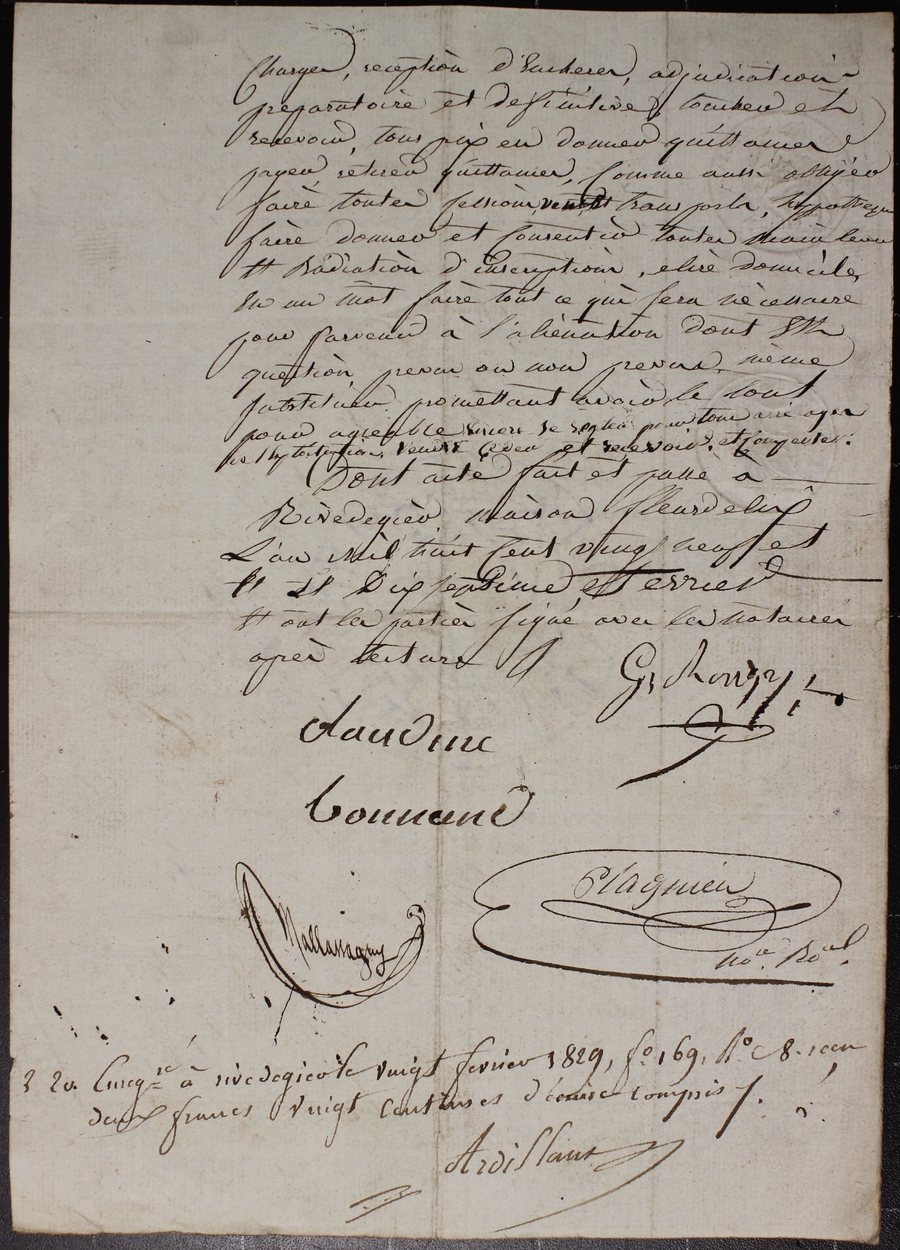 Charger, réception d'Encheres, adjudication
préparatoire et deffinitive, toucher et
recevoir, tous prix en donner quittances
payer retirer quittances, Comme aussi obliger
faire toutes Cessions, ventes transports, hypotheque
faire donner et Consentir toutes main levee
Et Radiation d'Inscriptions, elire domicile,
En un mot faire tout ce qui sera nécessaire
pour parvenir à l'aliénation dont Est
question, prevu ou non prevus, même
substituer promettant avoir le tout
pour agreable
vendre ceder et recevoir. et
Dont acte fait et passé à
Rivedegier maison fleurdelix
L'an Mil huit Cent vingt neuf et
le Dix septième fevrier
Et ont les parties signé avec les notaires
après lecture
Claudine
Bonnand
Plagnieu
No.re Ro.al
2 20. Enreg.re à rivedegier le vingt fevrier 1829, f.o 169, R.o C 8. recu
deux francs vingt centimes décime compris
Ardillant